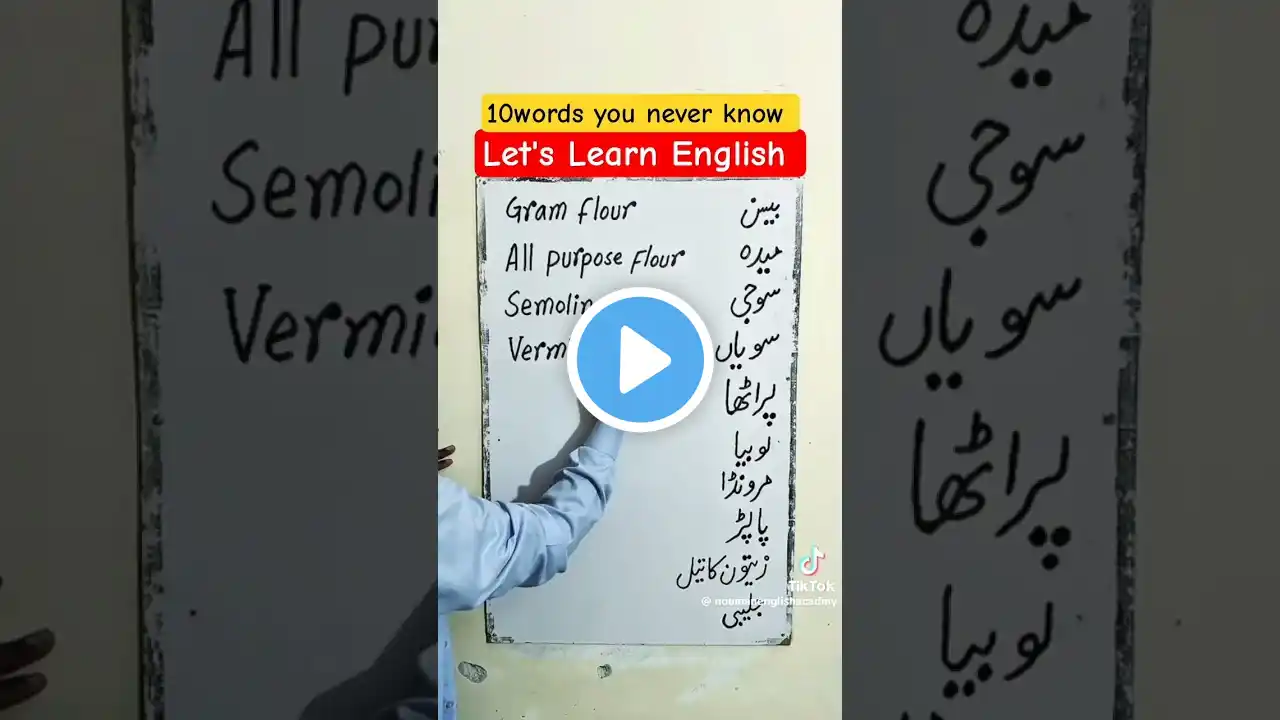 10words you never know
Let's Learn English
Gram flour بیسن
All purpose flour میدہ
Semolin سوجی
Verm سویاں
پراٹھا
لوبیا
مرونڈا
پاپڑ
زیتون کا تیل
جلیبی
TikTok
All pu
Semoli
Vermi
میدہ
سوجی
سویاں
پراٹھا
لوبیا